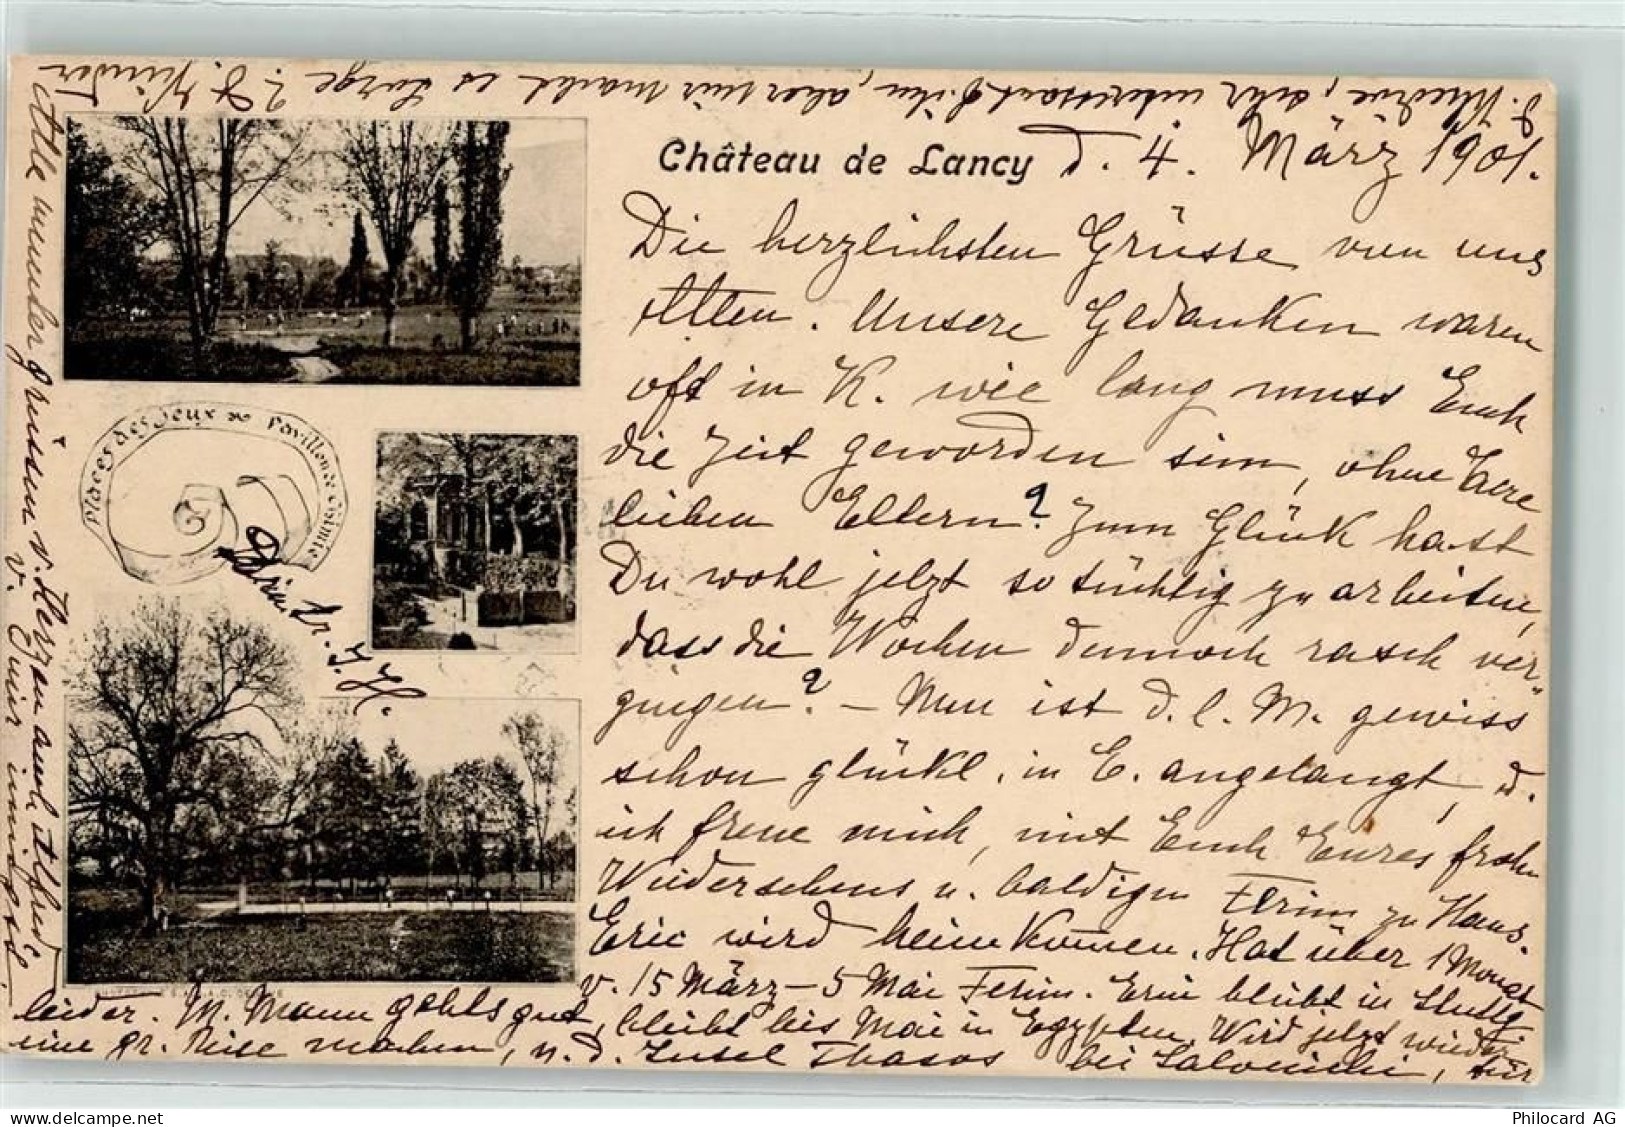 Château de Lancy d. 4. März 1901.
Die herzlichsten Grüsse von uns
Allen. Unsere Gedanken waren
oft in K. wie lang muss Euch
die Zeit geworden sein, ohne Eure
lieben Eltern? Zum Glück hast
Du wohl jetzt so tüchtig zu arbeiten,
dass die Wochen dennoch rasch ver-
gingen? – Nun ist d. l. M. gewiss
schon glückl. in E. angelangt, u.
ich freue mich, mit Euch Eures frohen
Wiedersehens u. baldigen Ferien zu Haus.
Eric wird heim kommen. Hat über 1 Monat
v. 15 März – 5 Mai Ferien. Erni bleibt in Stuttg.
leider. M. Mann gehts gut, bleibt bis Mai in Egypten. Wird jetzt wieder
eine gr. Reise machen, n. d. Insel Thasos bei Saloniki, für
d. Khedive, sehr interessant f. ihn, aber mir macht es Sorge f. d. Kinder
Alle munter grüssen v. Herzen auch Alfred
v. Eurer innigst
Places des Jeux Pavillon